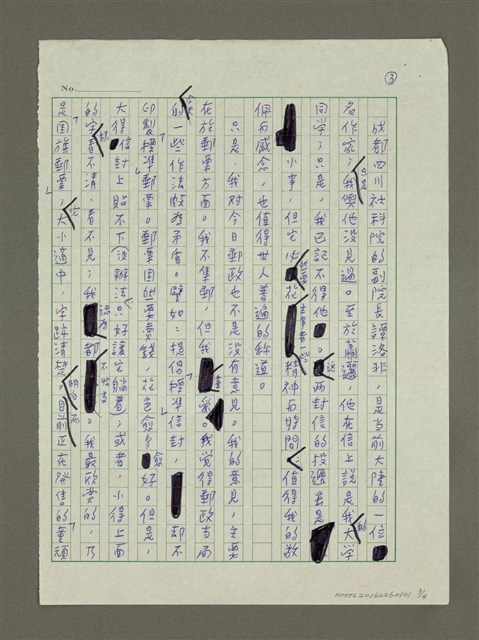 No.
③
成都四川社科院的副院長譚洛非,是當前大陸的一位
名作家,只是我與他沒見過。至於蕭邐,他在信上說是我的大學
同學,只是,我已記不得他。這兩封信的投遞雖是
小事,但它必然需花主事者一些精神與時間:值得我的敬
佩與感念,也值得世人普遍的稱道。
只是,我對今日郵政也不是沒有意見。我的意見,主要
在於郵票方面。我不集郵,但我覺得郵政當局
的一些作法頗為矛盾。譬如:提倡標準信封,却不
印製標準郵票。郵票固然要賣錢,花色愈多愈好。但是,
大得信封上貼不下(沒辦法,只好讓它躺着),或者,小得上面
的字看不清,看不見;我認為都不恰當。我最欣賞的,乃
是國旗郵票,它大小適中,字跡清楚明白。而目前正在發售的童頑
NMTL20160260101 3/4